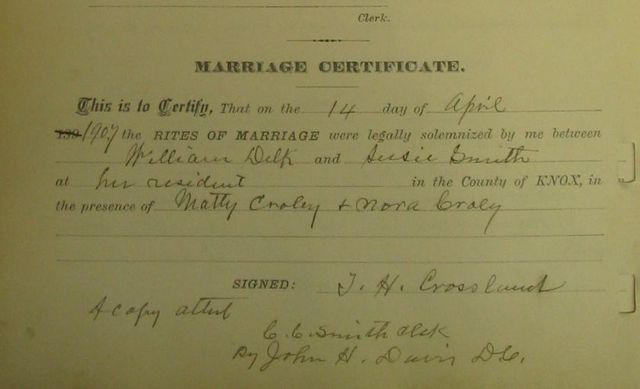 Clerk.
MARRIAGE CERTIFICATE.
This is to Certify, That on the 14 day of April
189 1907 the RITES OF MARRIAGE were legally solemnized by me between
William Delk and Susie Smith
at her resident in the County of KNOX, in
the presence of Matty Croley & Nora Croly
SIGNED: T. H. Crossland
A copy attest
C. C. Smith Clk
By John H. Davis D.C.